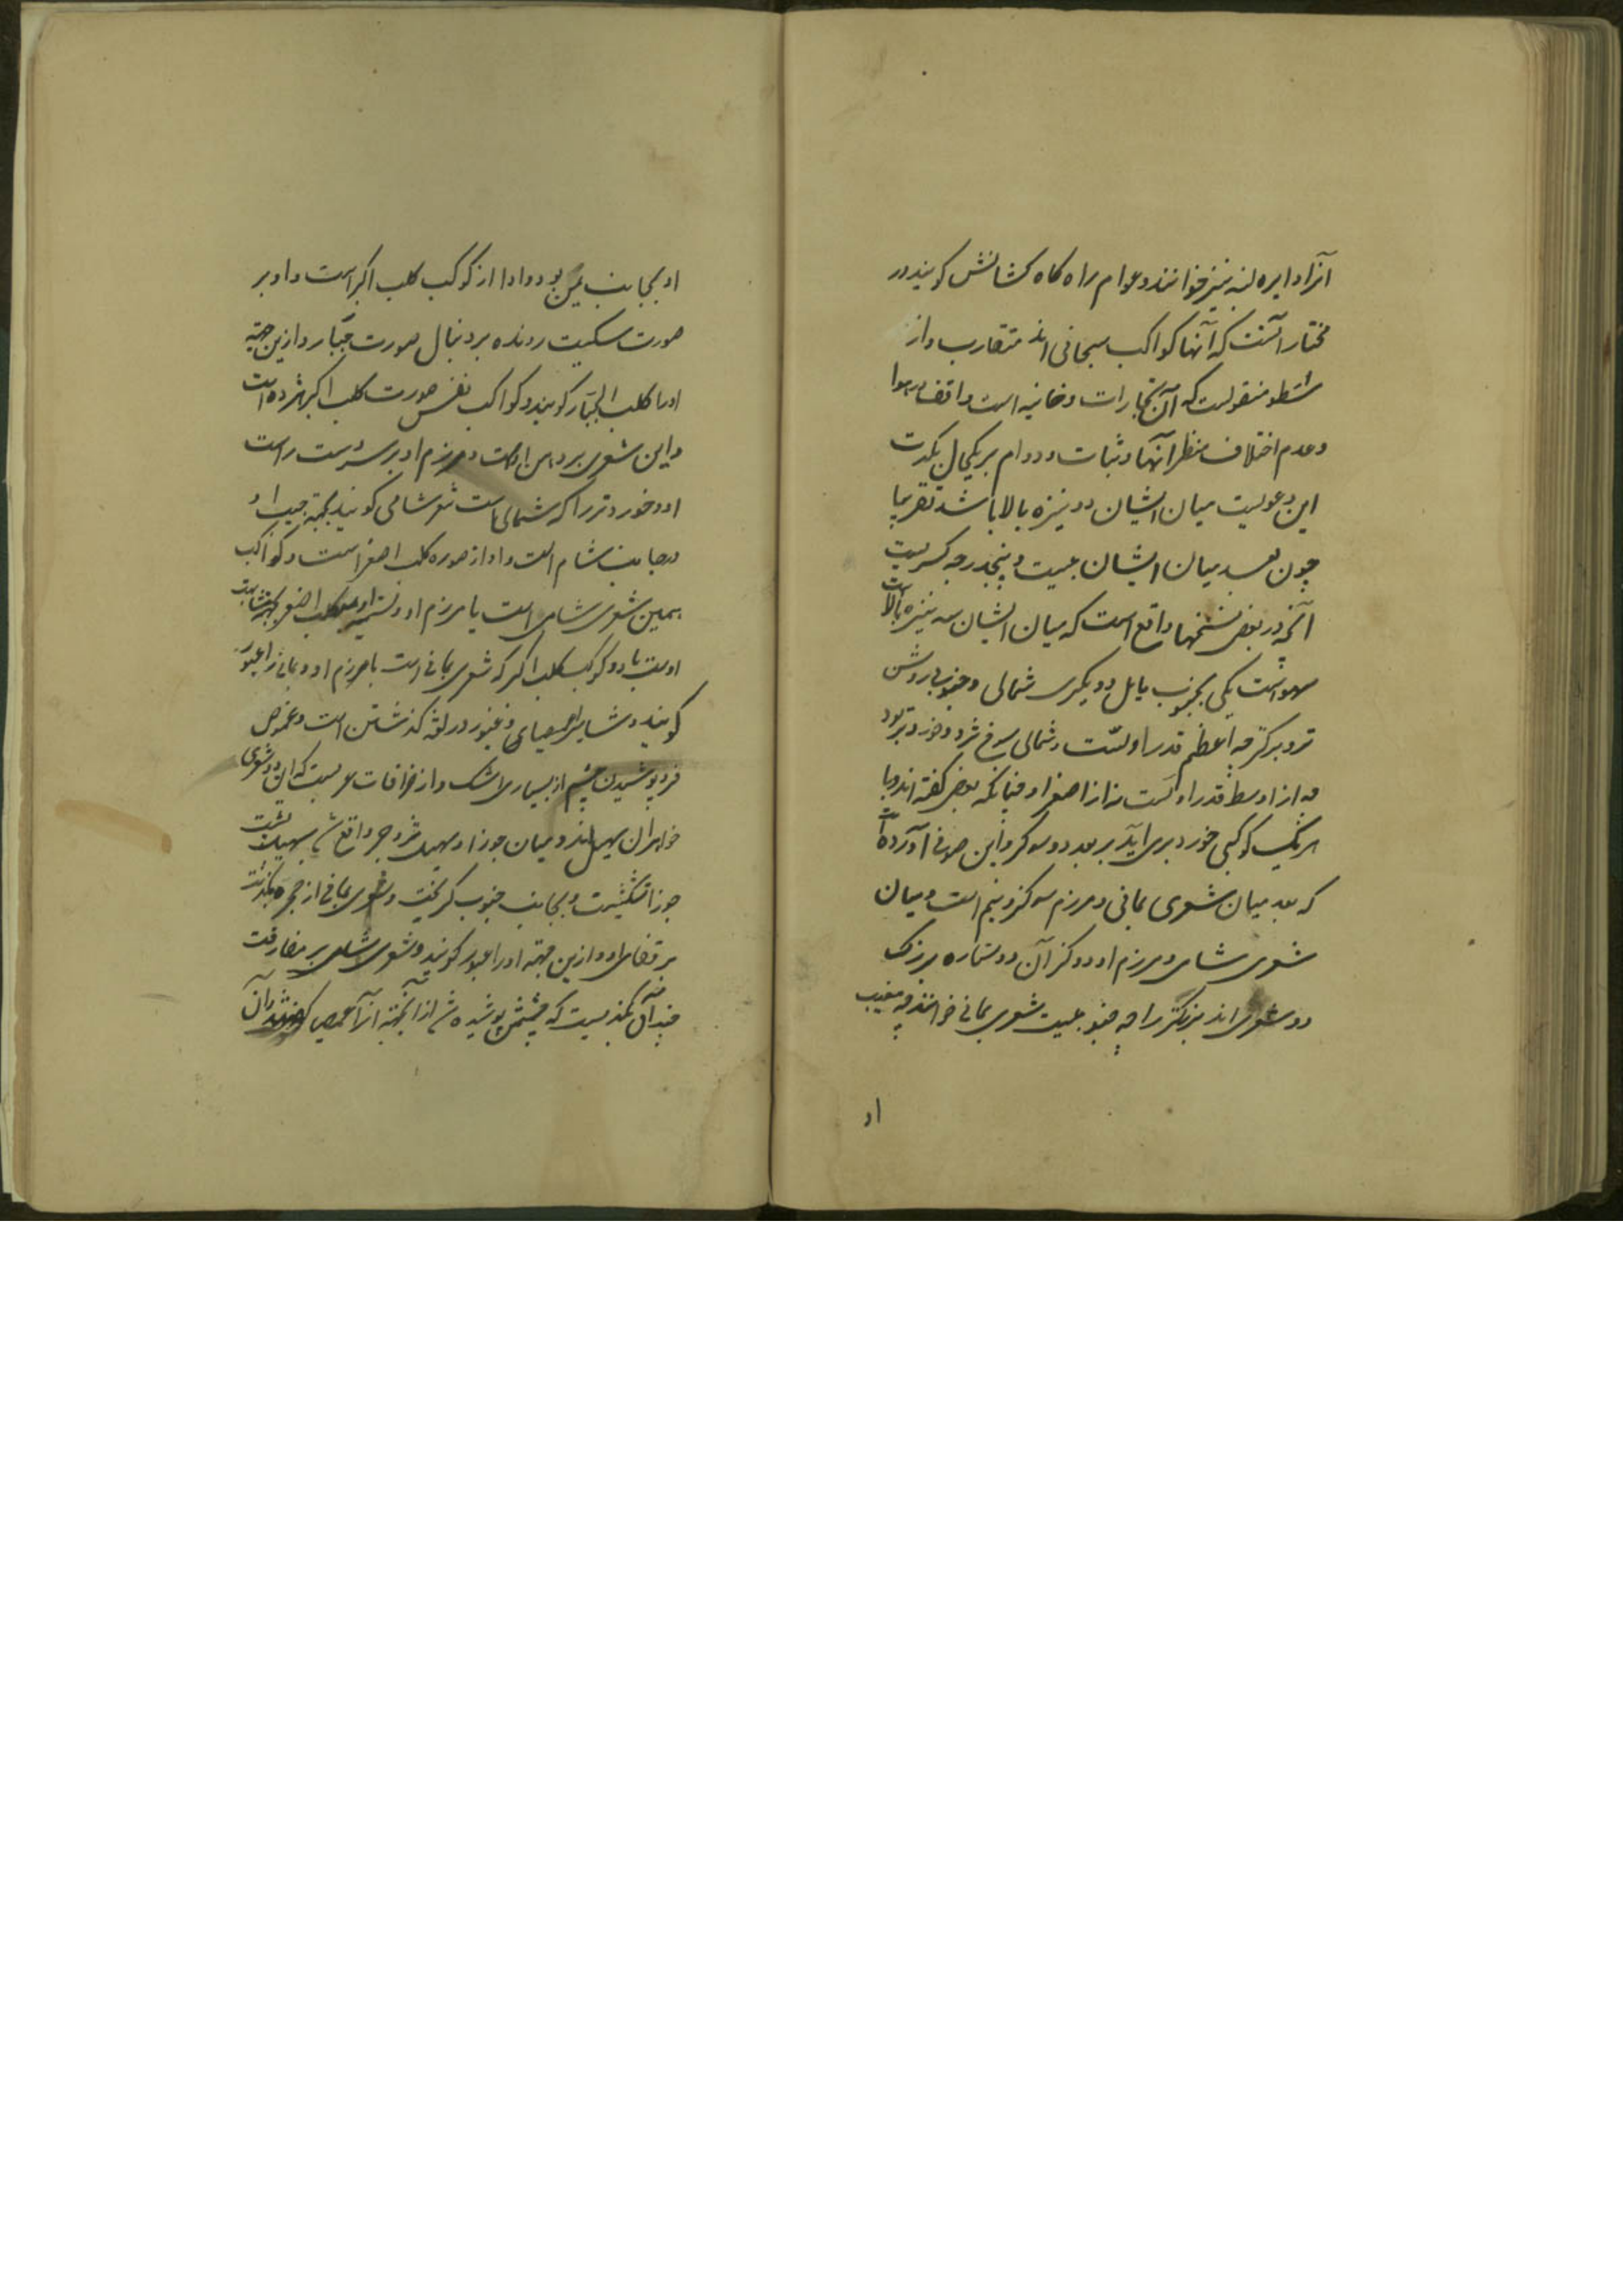 آنرا دایره لبنیه نیز خوانند و عوام راه کاه کشانش کویند و در
مختار آنست که آنها کواکب سحابی اند متقارب و از
منقولست که آن بخارات دخانیه است واقف در هوا
وعدم اختلاف منظر آنها و ثبات و دوام بر یکحال مکذب
این دعویست میان ایشان دو نیزه بالا باشد تقریبا
چون بعد میان ایشان بیست و پنجدرجه کسریست
آنچه در بعض نسخها واقع است که میان ایشان سه نیزه بالاست
سهواست یکی بجنوب مایل و دیگری شمالی و جنوبی روشن
تر و بزرکتر چه اعظم قدر اولست و شمالی سرخ تر و خوردتر بود
چه از اوسط قدر اولست نه از اصغر او چنانکه بعض کفته اند و با
هر یک کوکبی خورد برمی آید بر بعد دو سه کز و این صوفی آورده است
که بعد میان شعری یمانی و مرزم سه کز و نیم است و میان
شعری شامی و مرزم او دو کز آن دو ستاره بزرک
دو شعری اند بزرکتر را چه جنوبیست شعری یمانی خوانند چه مغیب
او
او بجانب یمن بود و او از کوکب کلب اکبر است و او بر
صورت سکیست رونده بر دنبال صورت جبّار و ازین جهة
او را کلب الجبّار کویند و کواکب نفس صورت کلب اکبر هژده است
و این شعری بر دهن اوست و مرزم او بر سر دست راست
او و خوردتر را که شمالی است شعری شامی کویند بجهة مغیب او
در جانب شام است و او از صوره کلب اصغر است و کواکب
همین شعری شامی است با مرزم او و تسمیه او بکلب اصغر بجهة مشابهت
اوست با دو کوکب کلب اکبر که شعری یمانی است با مرزم او و یمانی را عبور
کویند و شامی را غمیصا و عبور در لغة کذشتن است و غموص
فرو پوشیدن چشم از بسیاری اشک و از خرافات عربست که این دو شعری
خواهران سهیل اند و میان جوزا و سهیل تزوج واقع شد سهیل پشت
جوزا شکست و بجانب جنوب کریخت و شعری یمانی از مجره بکذشت
بر قفای او و ازین جهة او را عبور کویند و شعری شامی بر مفارقت
چندان بکریست که چشمش پوشیده شد از آنجهة آنرا غمیصا کویند